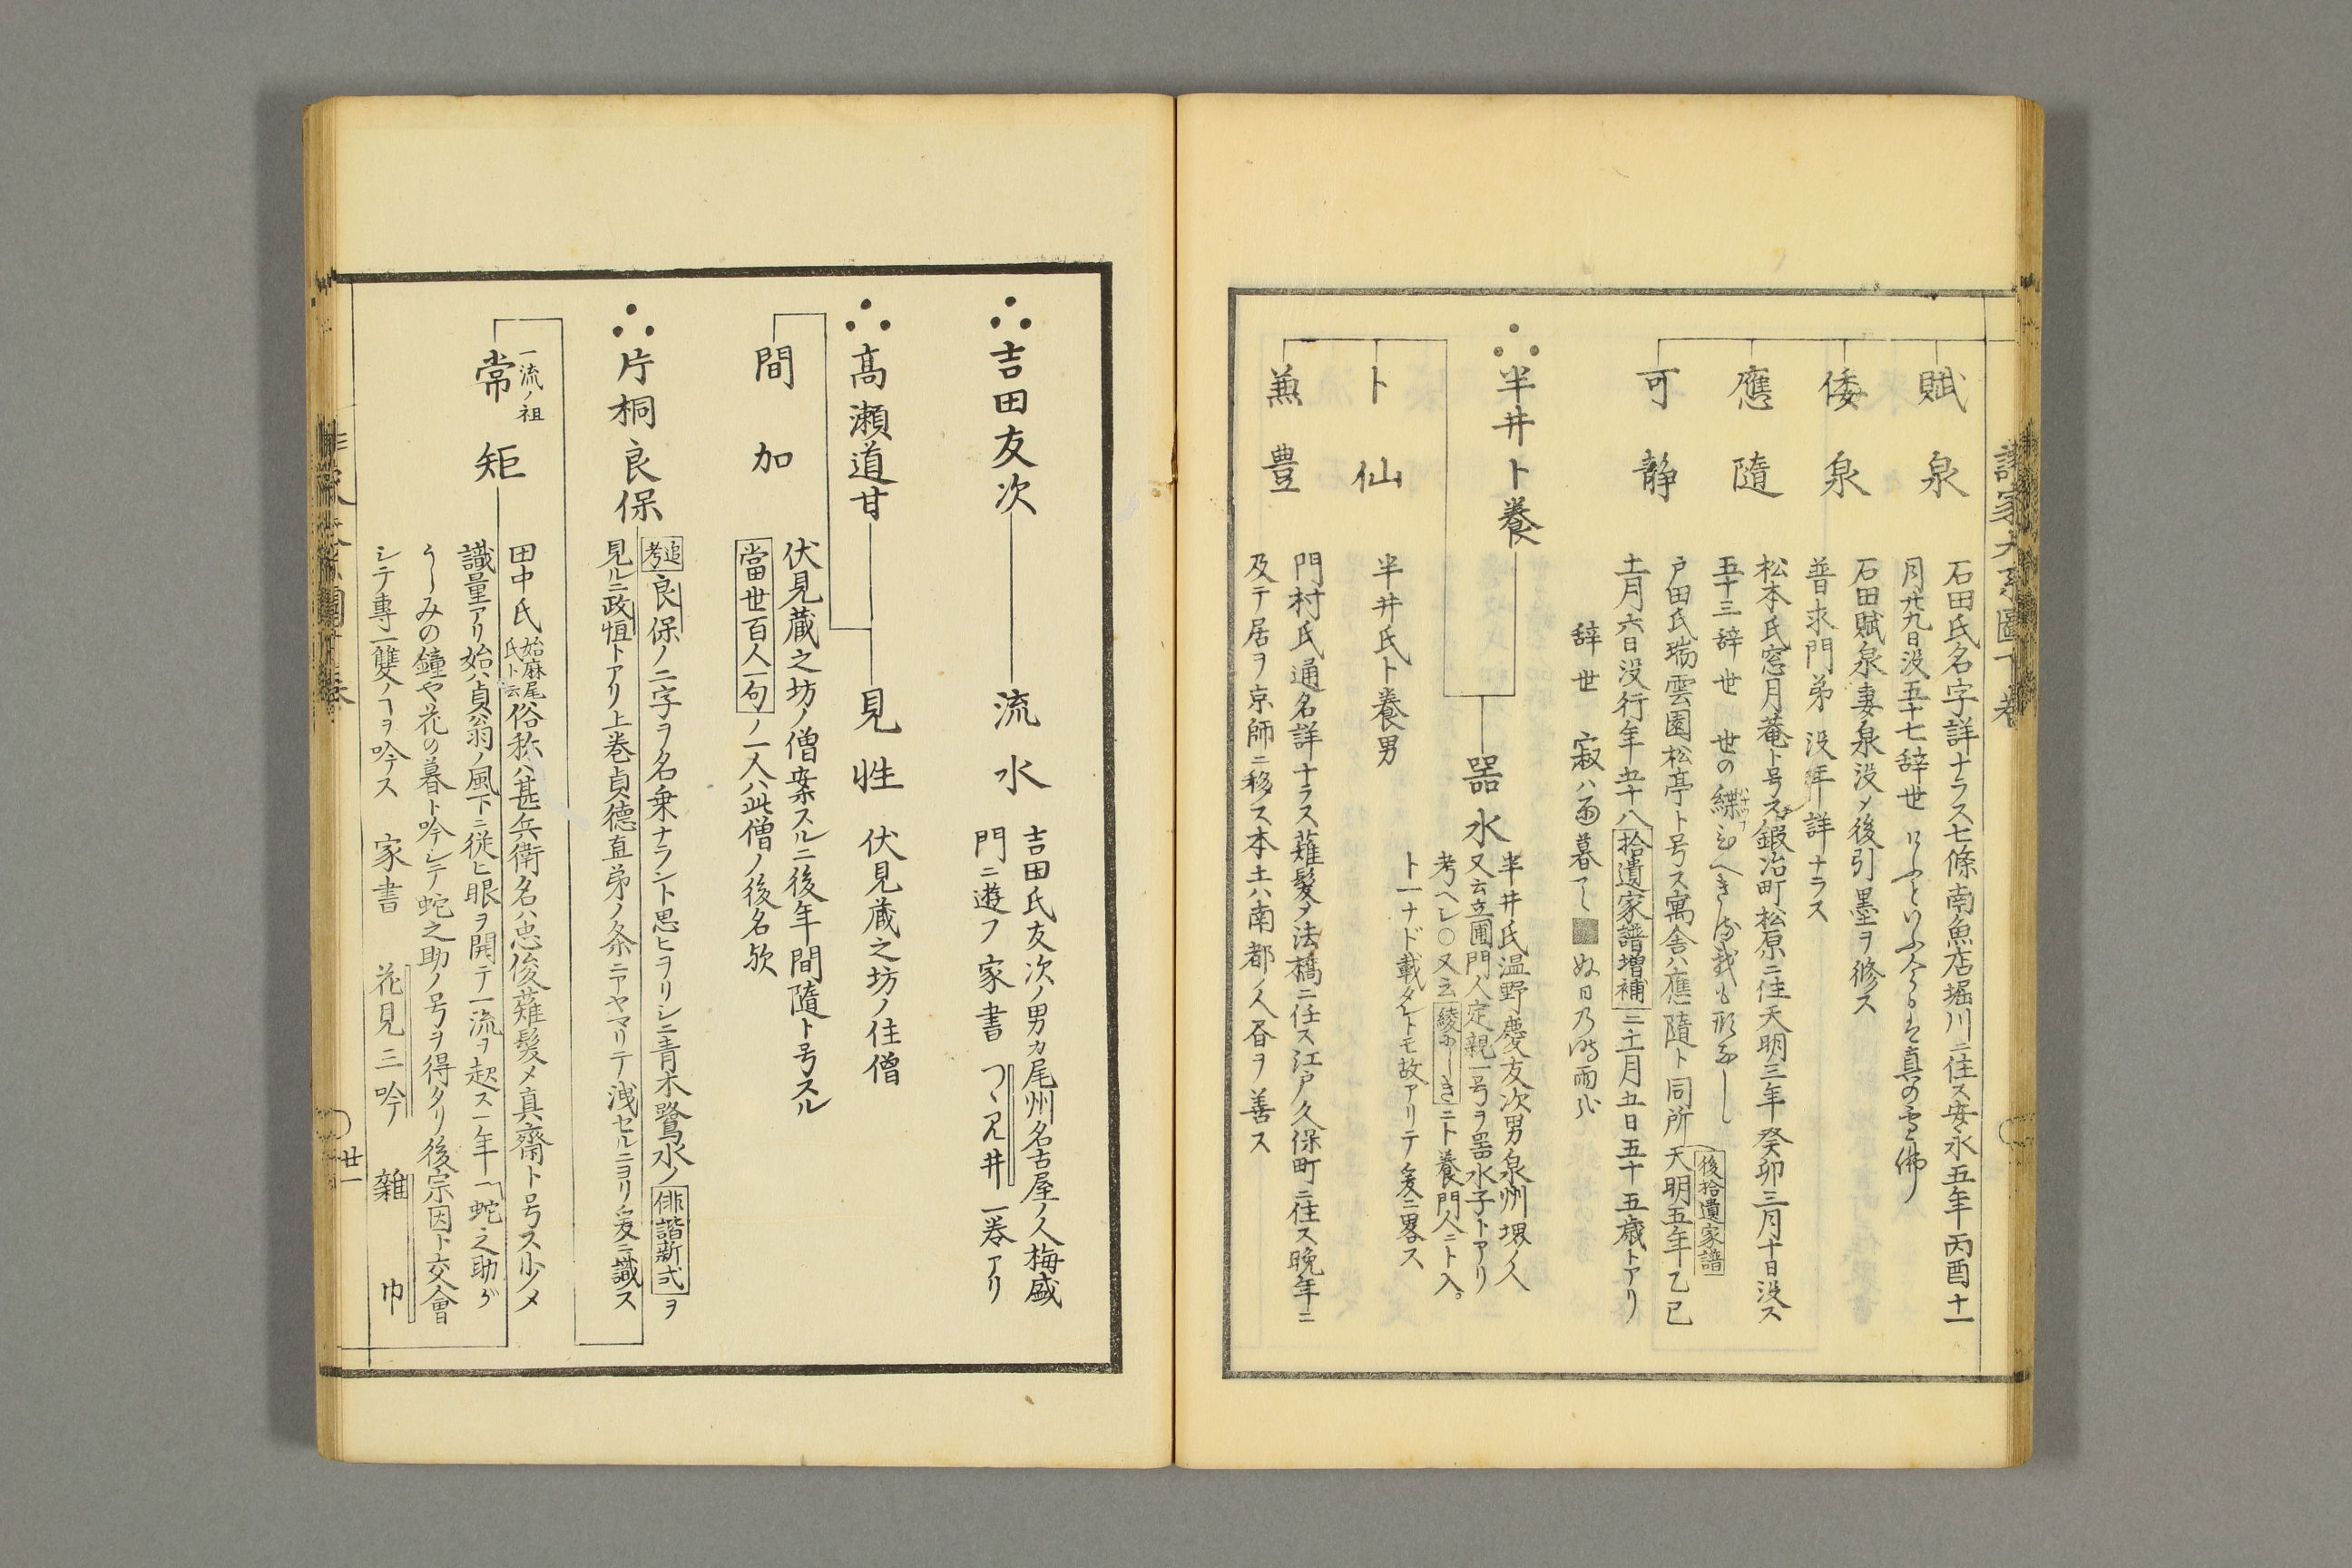 賦泉
石田氏名字詳ナラス七條南魚店堀川ニ住ス安永五年丙酉十一
月廿九日没五十七辞世
倭泉
石田賦泉妻泉没〆後引墨ヲ修ス
普求門弟没年詳ナラス
應隨
松本氏窓月菴ト号ス鍜冶町松原ニ住天明三年癸卯三月十日没ス
五十三辞世
可静
戸田氏瑞雲園松亭ト号ス寓舎ハ應隨ト同所天明五年乙巳
後拾遺家譜
十一月六日没行年五十八拾遺家譜増補ニ十一月五日五十五歳トアリ
辞世
半井卜養
器水
半井氏温野慶友次男泉州堺ノ人
又云立圃門人定親一号ヲ器水子トアリ
考ヘシ〇又云綾にしきニト養門人ニト入。
ト一ナド載タレトモ故アリテ爰ニ畧ス
卜仙
半井氏卜養男
兼豊
門村氏通名詳ナラス薙髪〆法橋ニ任ス江戸久保町ニ住ス晩年ニ
及テ居ヲ京師ニ移ス本土ハ南都ノ人香ヲ善ス
吉田友次
流水
吉田氏友次ノ男カ尾州名古屋ノ人梅盛
門ニ遊フ 家書 つゝ見井 一巻アリ
髙瀬道甘
見性
伏見蔵之坊ノ住僧
間加
伏見蔵之坊ノ僧案スルニ後年間隨ト号スル
當世百人一句ノ一人ハ此僧ノ後名欤
片桐良保
追考 良保ノ二字ヲ名乗ナラント思ヒヲリシニ青木鷺水ノ俳諧新式ヲ
見ルニ政恒トアリ上巻貞徳直弟ノ条ニアヤマリテ洩セルニヨリ爰ニ識ス
一流ノ祖
常矩
田中氏始麻尾氏ト云俗称ハ甚兵衛名ハ忠俊薙髪〆真齋ト号ス少〆
識量アリ始ハ貞翁ノ風下ニ従ヒ眼ヲ開テ一流ヲ起ス一年蛇之助が
うらみの鐘や花の暮ト吟シテ蛇之助ノ号ヲ得タリ後宗因ト交會
シテ専一雙ノヿヲ吟ス 家書 花見三吟 雜巾
廿一